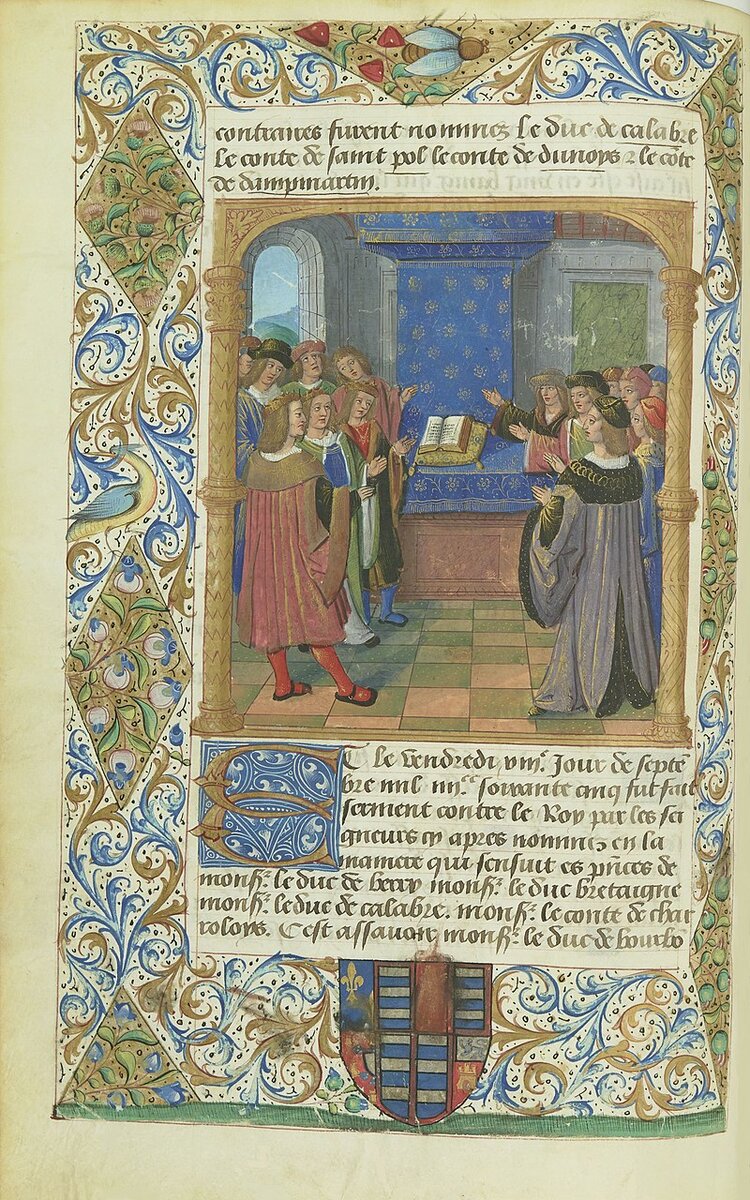 contraires furent nommez le duc de calabre
le conte de saint pol le conte de dunoys & le cōte
de dampmartin.
Et le vendredi viiiᵉ. Jour de septē
bre mil iiiiᶜ. soixante cinq fut fait
serment contre le Roy par les sei
gneurs cy apres nommez en la
maniere qui sensuit es p̃nces de
monsʳ. le duc de berry monsʳ. le duc bretaigne
monsʳ. le duc de calabre. monsʳ. le conte de char
roloys. Cest assavoir monsʳ. le duc de bourbō